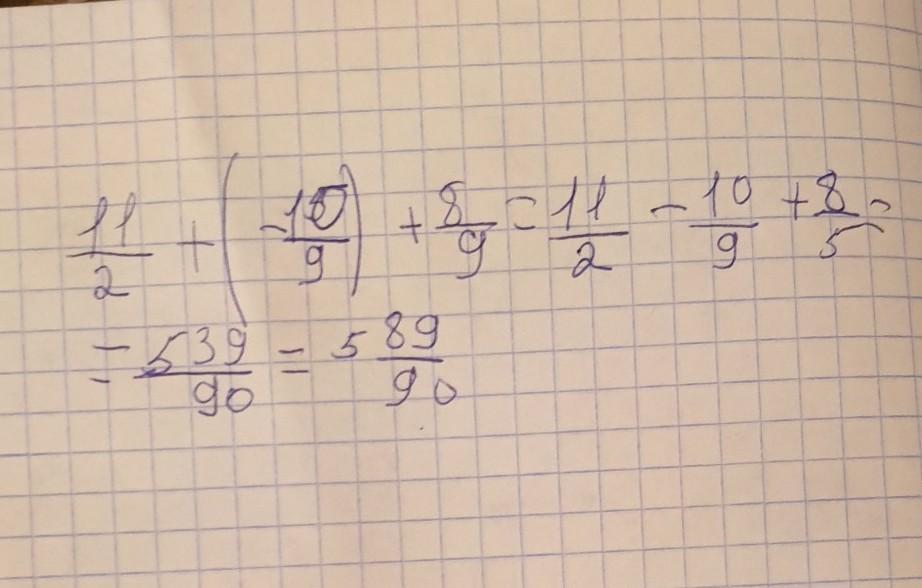 11/2 + (-10/9) + 8/9 = 11/2 - 10/9 + 8/5 =
= 539/90 = 5 89/90